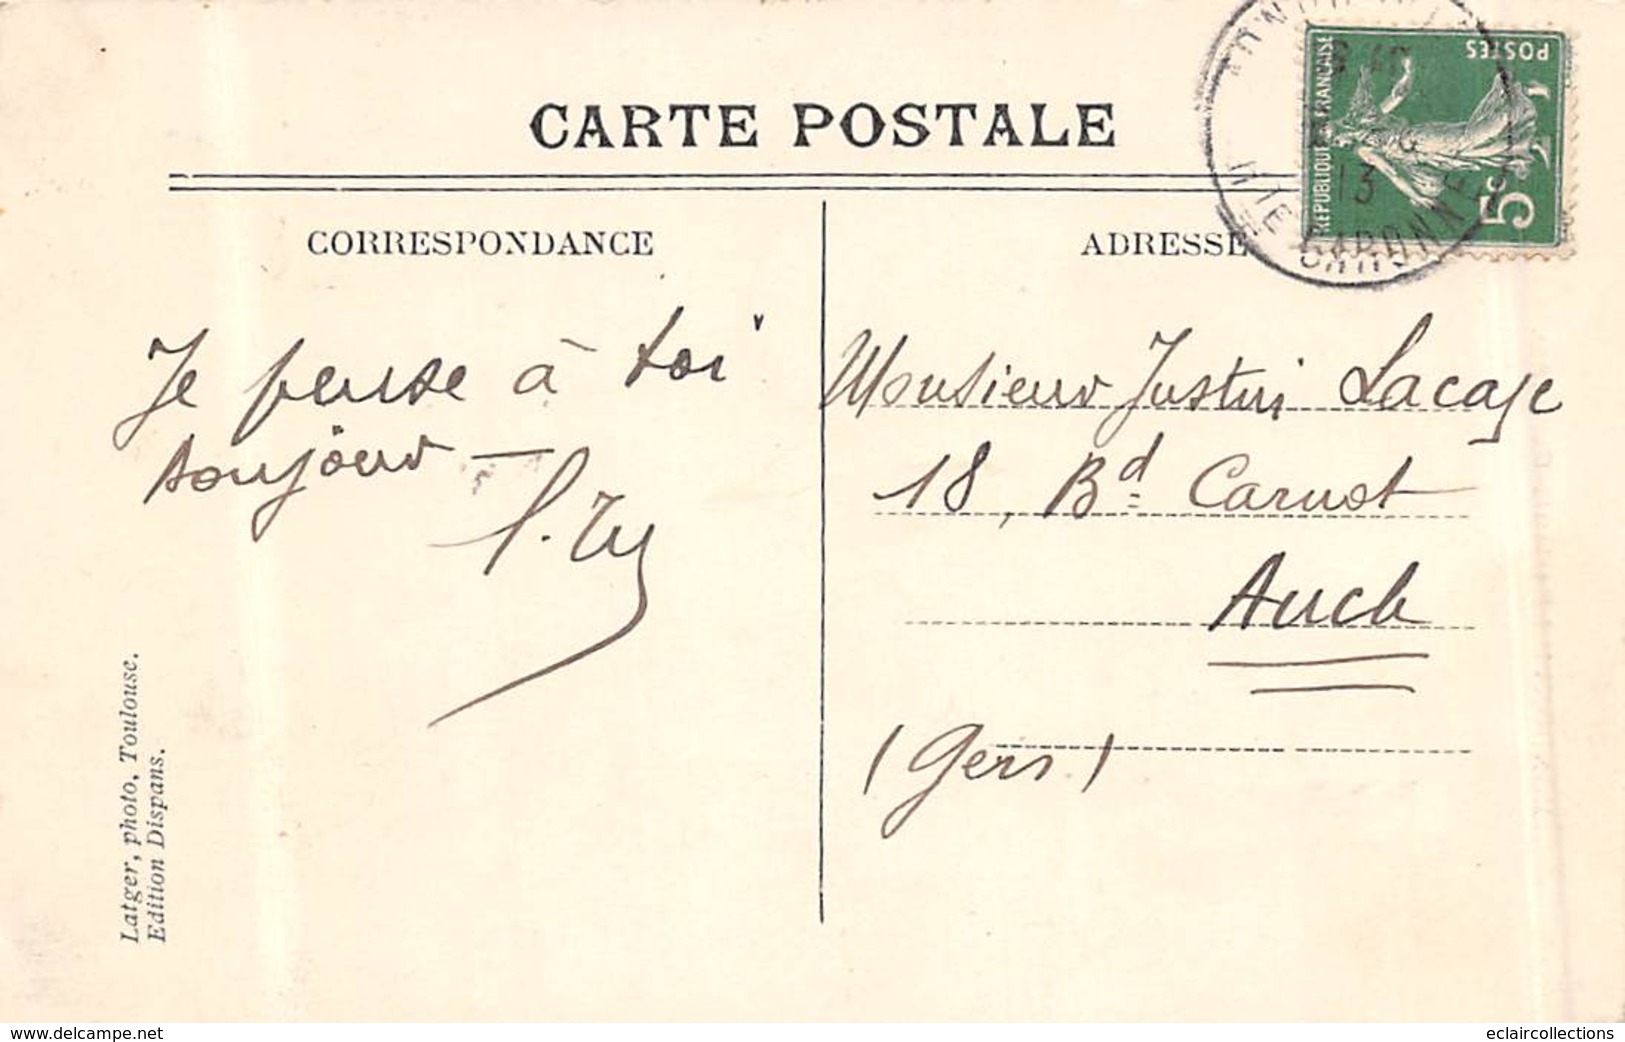 CARTE POSTALE
CORRESPONDANCE
ADRESSE
Je pense à toi
toujours —
Monsieur Justin Lacaze
18, Bd Carnot
Auch
(Gers)
Latger, photo, Toulouse.
Edition Dispans.
REPUBLIQUE FRANÇAISE
POSTES
5c
13
HTE GARONNE
www.delcampe.net
eclaircollections